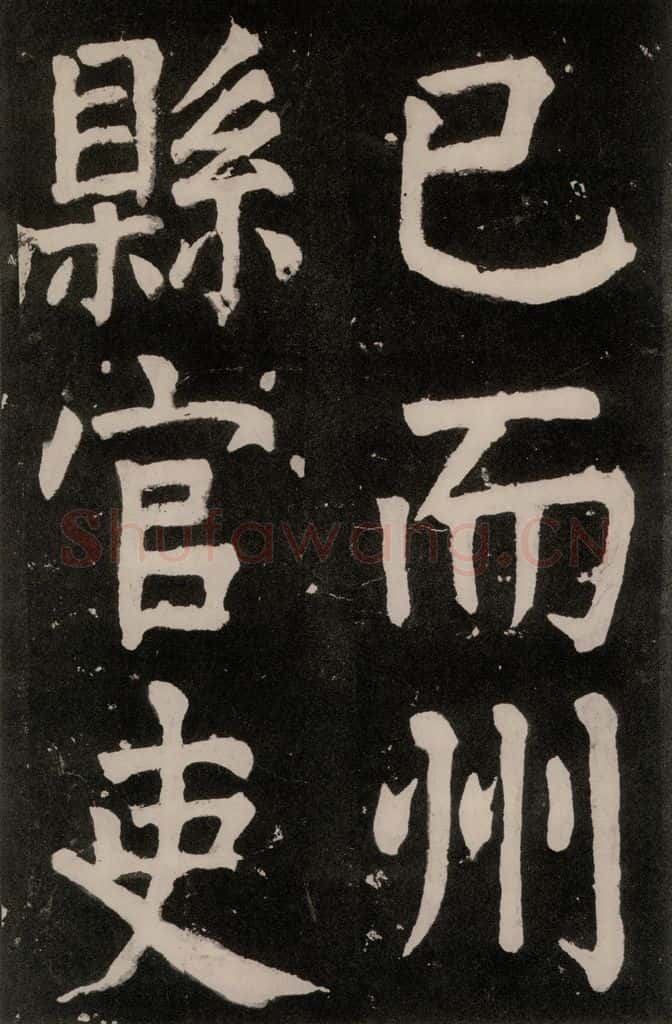 已而州
縣官吏
Shufawang.CN